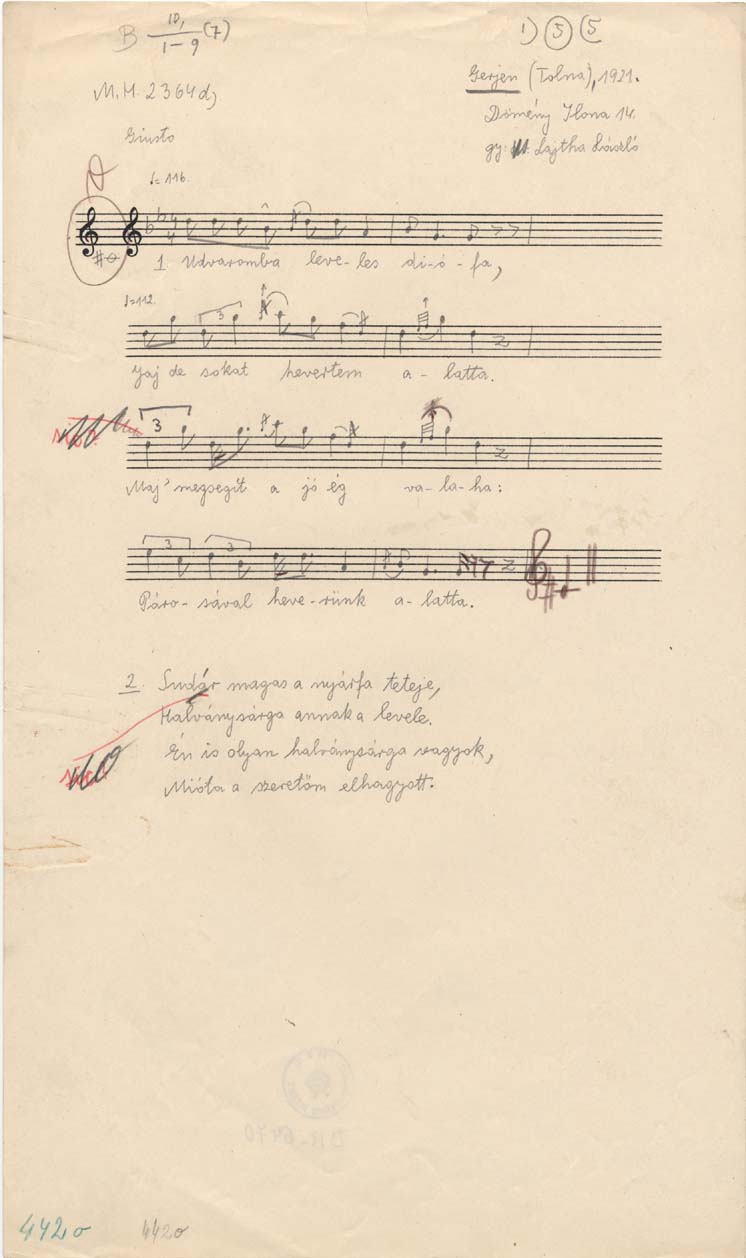 B 10, / 1-9 (7)
1) 5 (5
M.H. 2364d)
Gerjen (Tolna), 1921.
Dömény Ilona 14.
Giusto
gy: Lajtha László
♩=116.
1 Udvaromba leve-les di-ó-fa,
♩=112.
3
Jaj de sokat hevertem a-latta.
3
Maj' megsegít a jó ég va-la-ha:
3 3
Páro-sával heve-rünk a-latta.
2. Sudár magas a nyárfa teteje,
Halványsárga annak a levele.
Én is olyan halványsárga vagyok,
Mióta a szeretőm elhagyott.
4420 4420